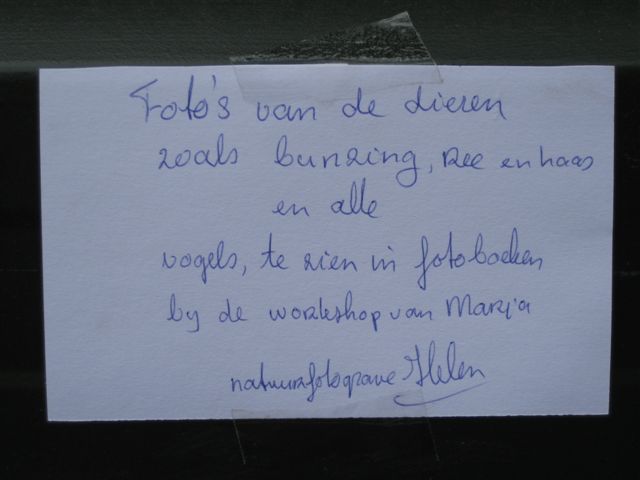 Foto's van de dieren
zoals bunzing, ree en haas
en alle
vogels, te zien in fotoboeken
bij de workshop van Marja
natuurfotograve Helen